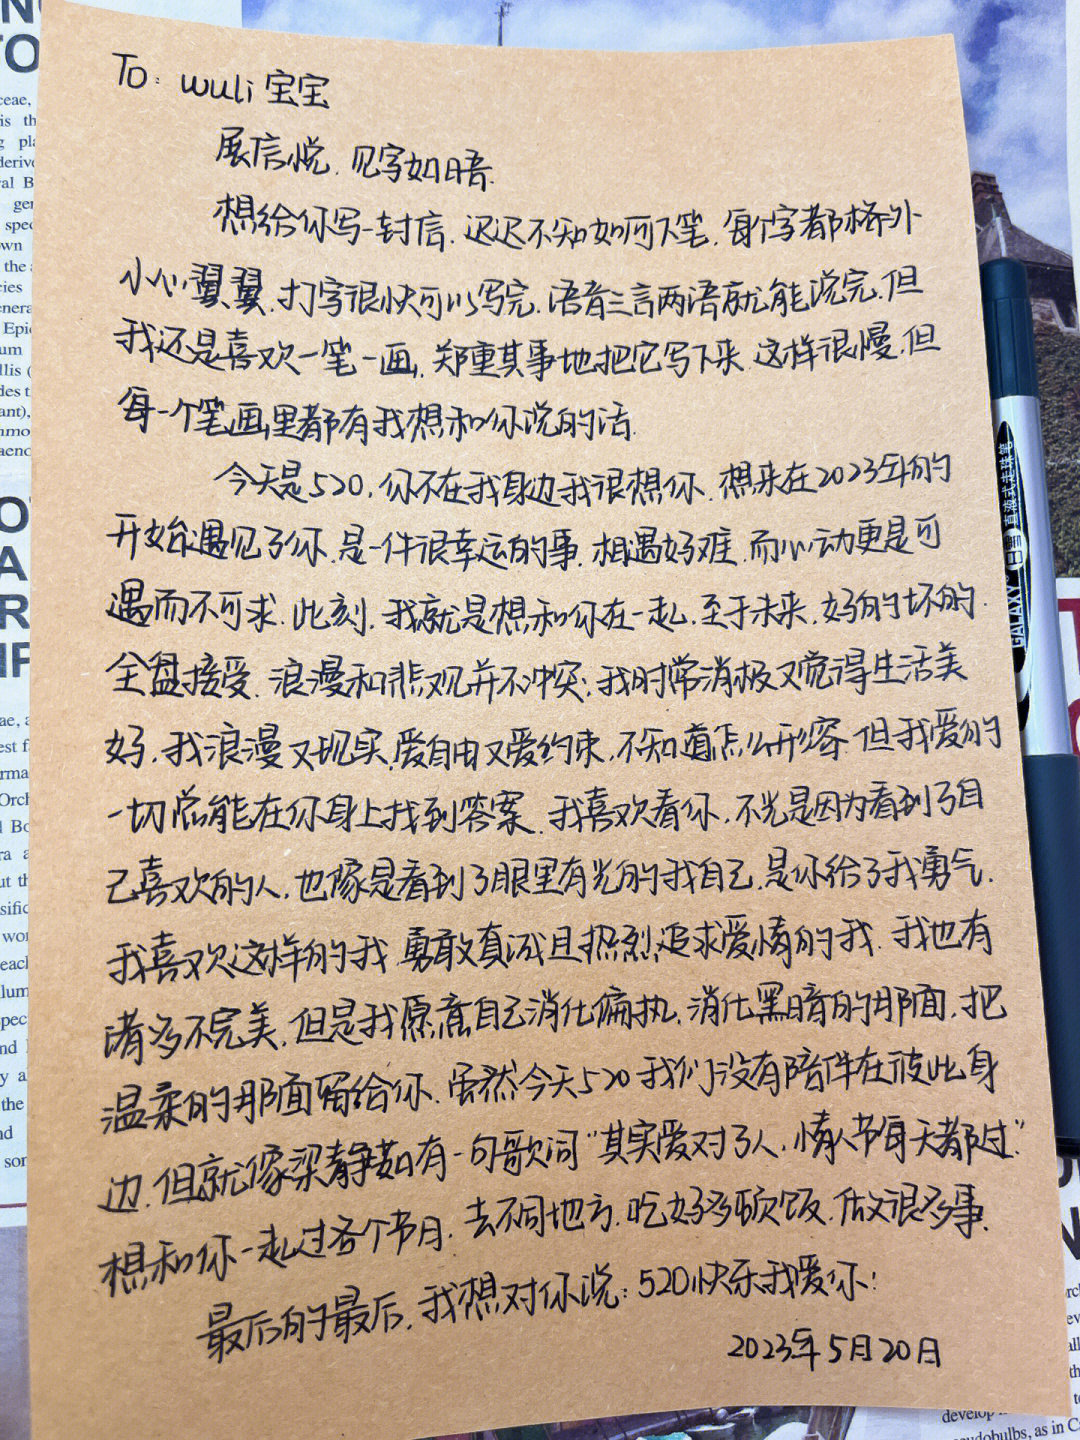 To: wuli宝宝
展信悦.见字如晤.
想给你写一封信.迟迟不知如何下笔.每个字都格外
小心翼翼.打字很快可以写完.语音三言两语就能说完.但
我还是喜欢一笔一画.郑重其事地把它写下来.这样很慢.但
每一个笔画里都有我想和你说的话.
今天是520.你不在我身边我很想你.想来在2023年的
开始遇见了你.是一件很幸运的事.相遇好难.而心动更是可
遇而不可求.此刻.我就是想和你在一起.至于未来.好的坏的.
全盘接受.浪漫和悲观并不冲突.我时常消极又觉得生活美
好.我浪漫又现实.爱自由又爱约束.不知道怎么形容.但我爱的
一切总能在你身上找到答案.我喜欢看你.不光是因为看到了自
己喜欢的人.也像是看到了眼里有光的我自己.是你给了我勇气.
我喜欢这样的我.勇敢真诚且热烈追求爱情的我.我也有
诸多不完美.但是我愿意自己消化偏执.消化黑暗的那面.把
温柔的那面留给你.虽然今天520我们没有陪伴在彼此身
边.但就像梁静茹有一句歌词"其实爱对了人.情人节每天都过".
想和你一起过各个节日.去不同地方.吃好多顿饭.做很多事.
最后的最后.我想对你说:520快乐我爱你!
2023年5月20日
GALAXY 巨量 直液式走珠笔